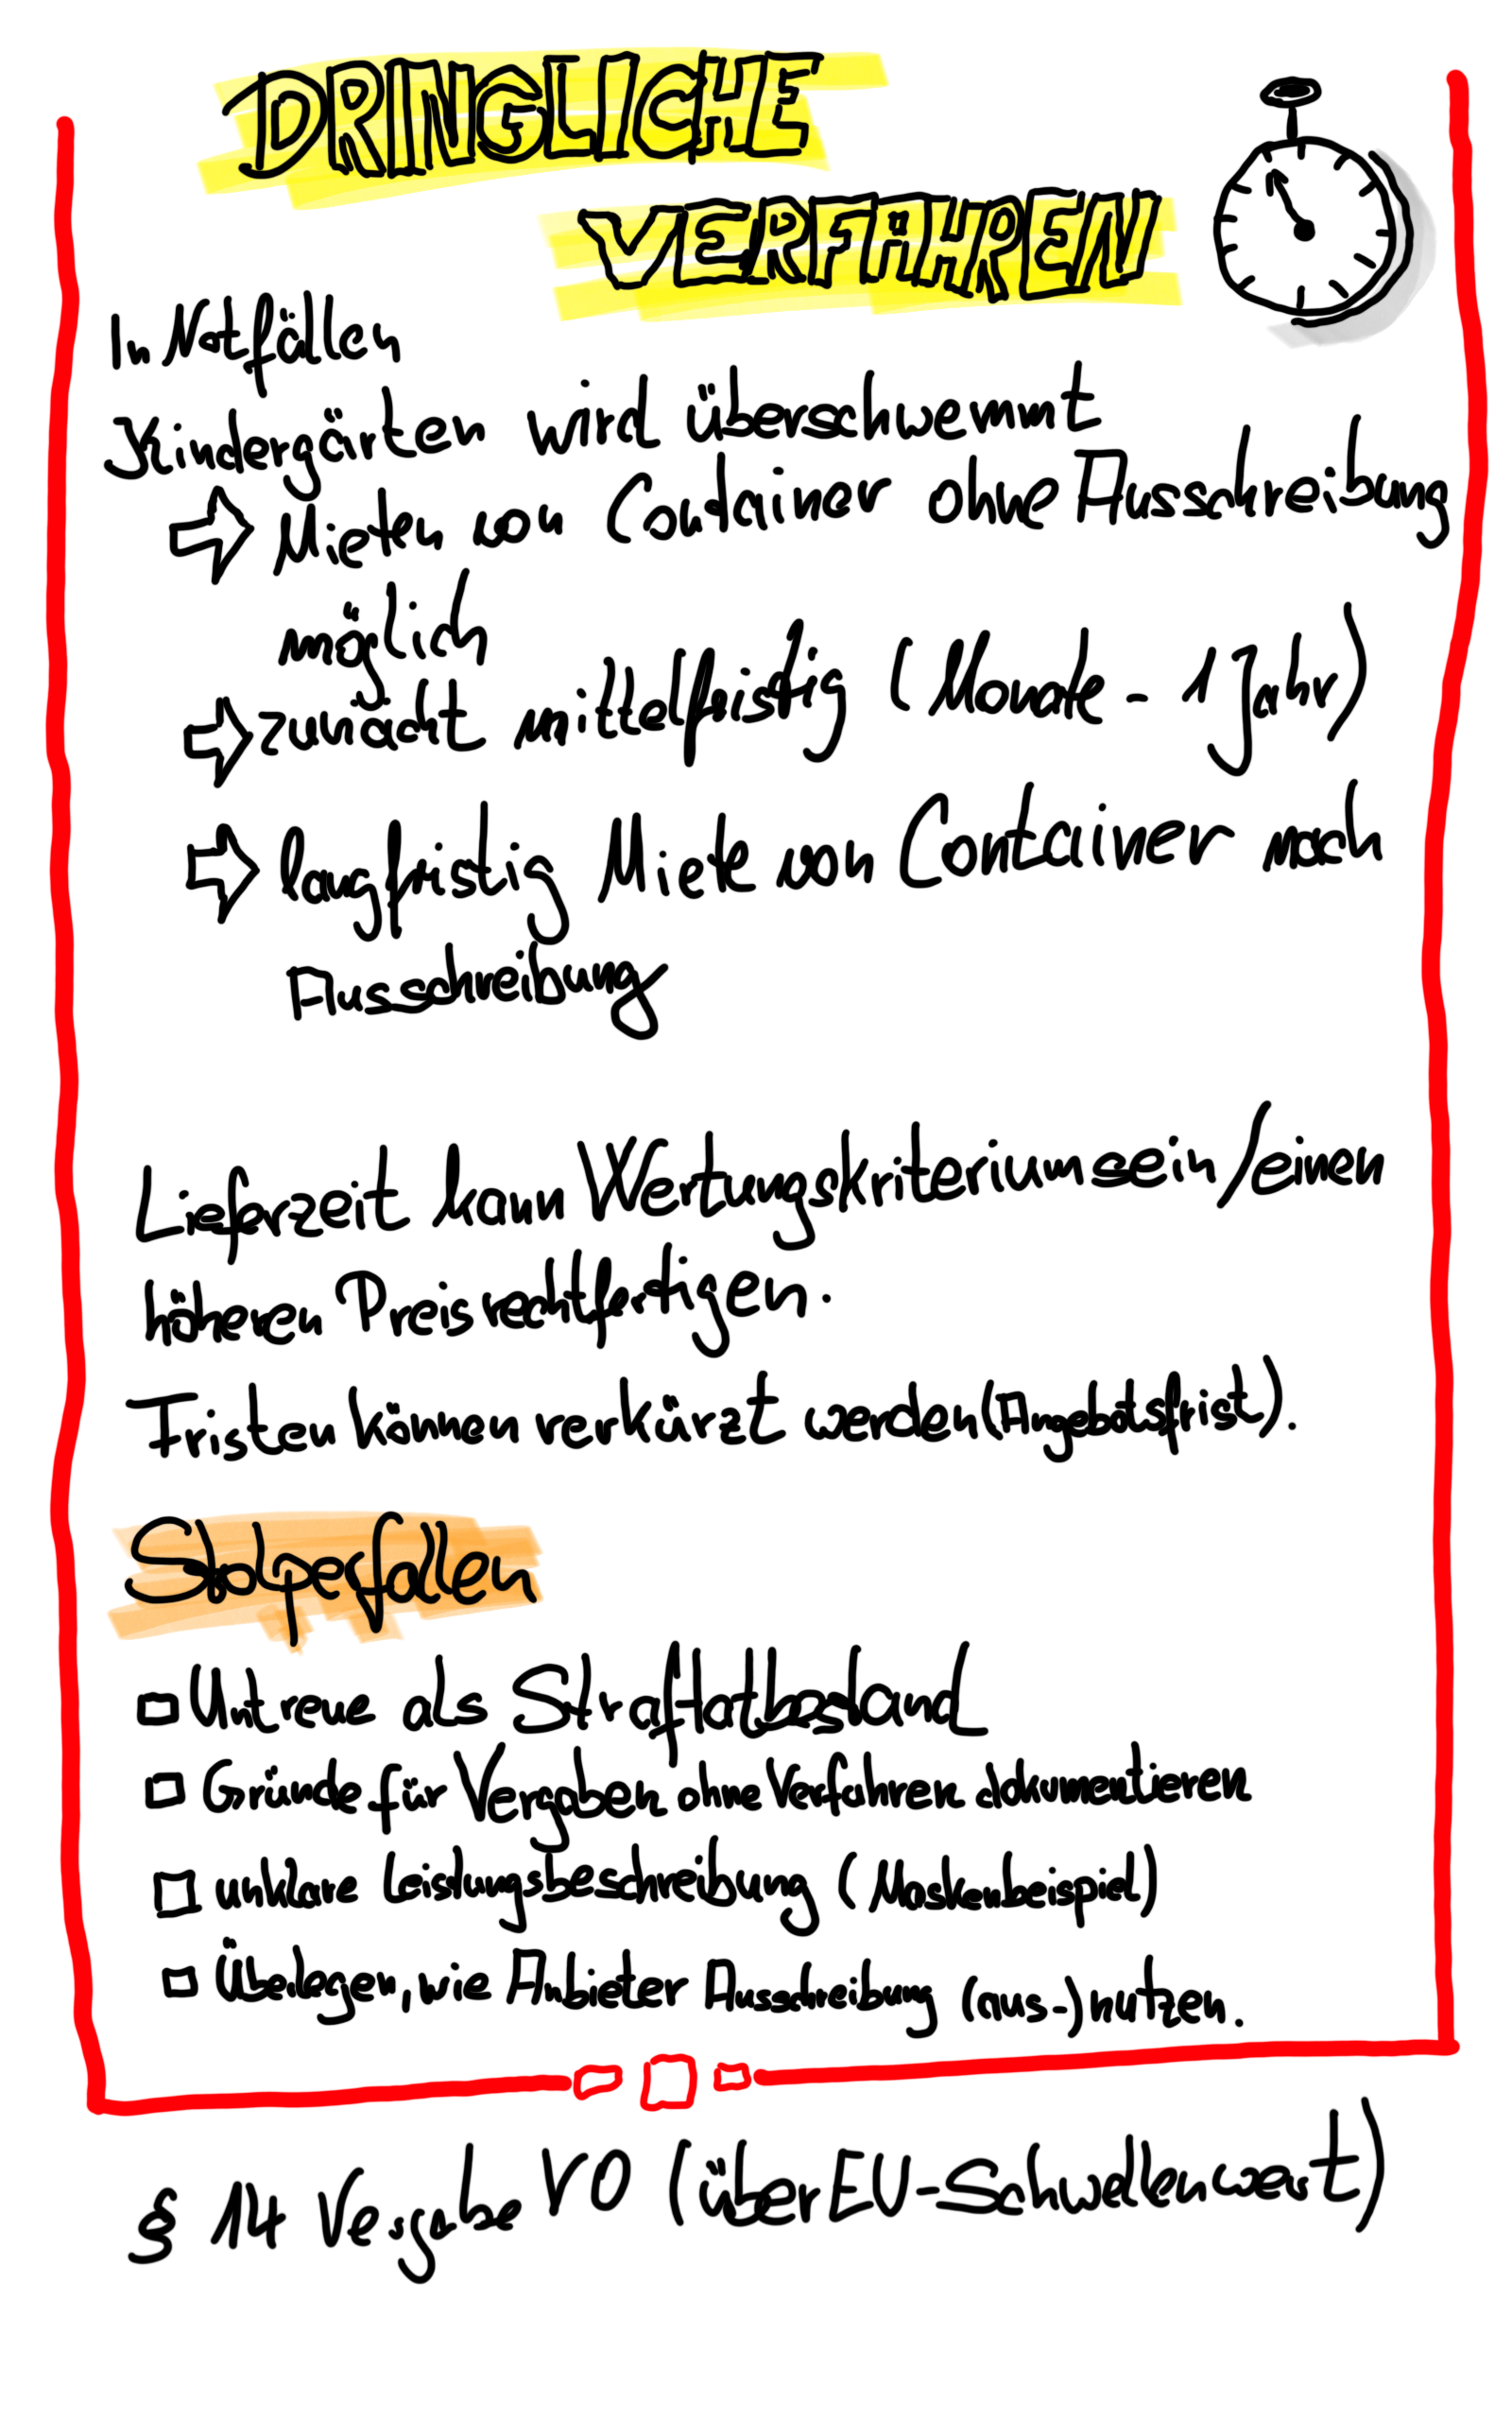 DRINGLICHE
VERFAHREN
In Notfällen
Kindergärten wird überschwemmt
⇨ Mieten von Container ohne Ausschreibung
möglich
⇨ zunächt mittelfristig (Monate - 1 Jahr)
⇨ langfristig Miete von Container nach
Ausschreibung
Lieferzeit kann Wertungskriterium sein/einen
höheren Preis rechtfertigen.
Fristen können verkürzt werden (Angebotsfrist).
Stolperfallen
□ Untreue als Straftatbestand
□ Gründe für Vergaben ohne Verfahren dokumentieren
□ unklare Leistungsbeschreibung (Maskenbeispiel)
□ Überlegen, wie Anbieter Ausschreibung (aus-)nutzen.
§ 14 Vergabe VO (über EU-Schwellenwert)